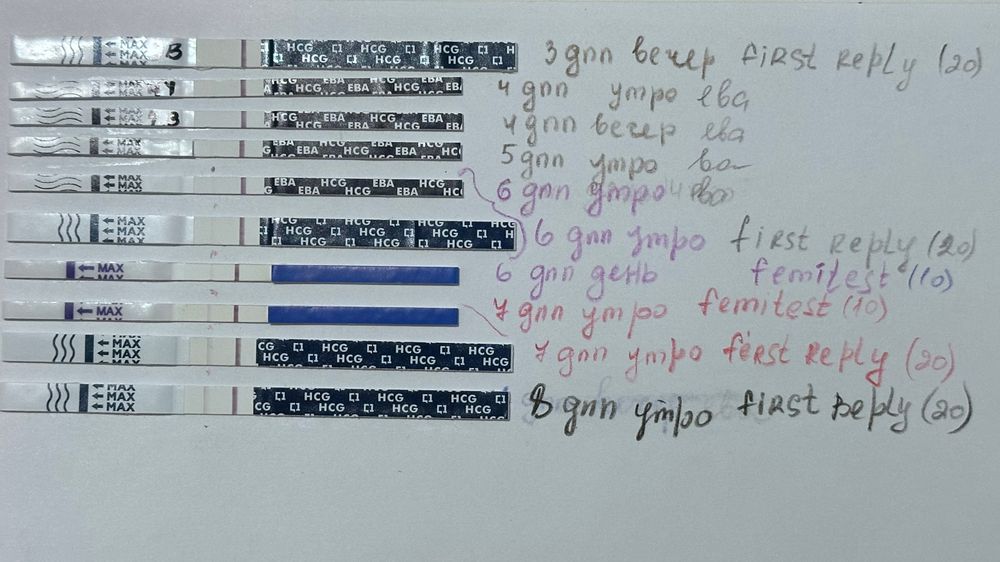 MAX MAX В HCG C1 HCG C1 HCG C1 H 3 дпп вечер first reply (20)
MAX MAX ч HCG EBA HCG EBA HCG EBA 4 дпп утро ева
MAX MAX 3 HCG EBA HCG EBA HCG EBA 4 дпп вечер ева
MAX MAX EBA HCG EBA HCG EBA HCG 5 дпп утро
MAX MAX EBA HCG EBA HCG EBA HCG 6 дпп утро ева
MAX MAX HCG C1 HCG C1 HCG C1 6 дпп утро first reply (20)
MAX 6 дпп день femitest (10)
MAX 7 дпп утро femitest (10)
MAX MAX MAX CG C1 HCG C1 HCG C1 HCG 7 дпп утро first reply (20)
MAX MAX MAX HCG C1 HCG C1 HCG C1 8 дпп утро first reply (20)